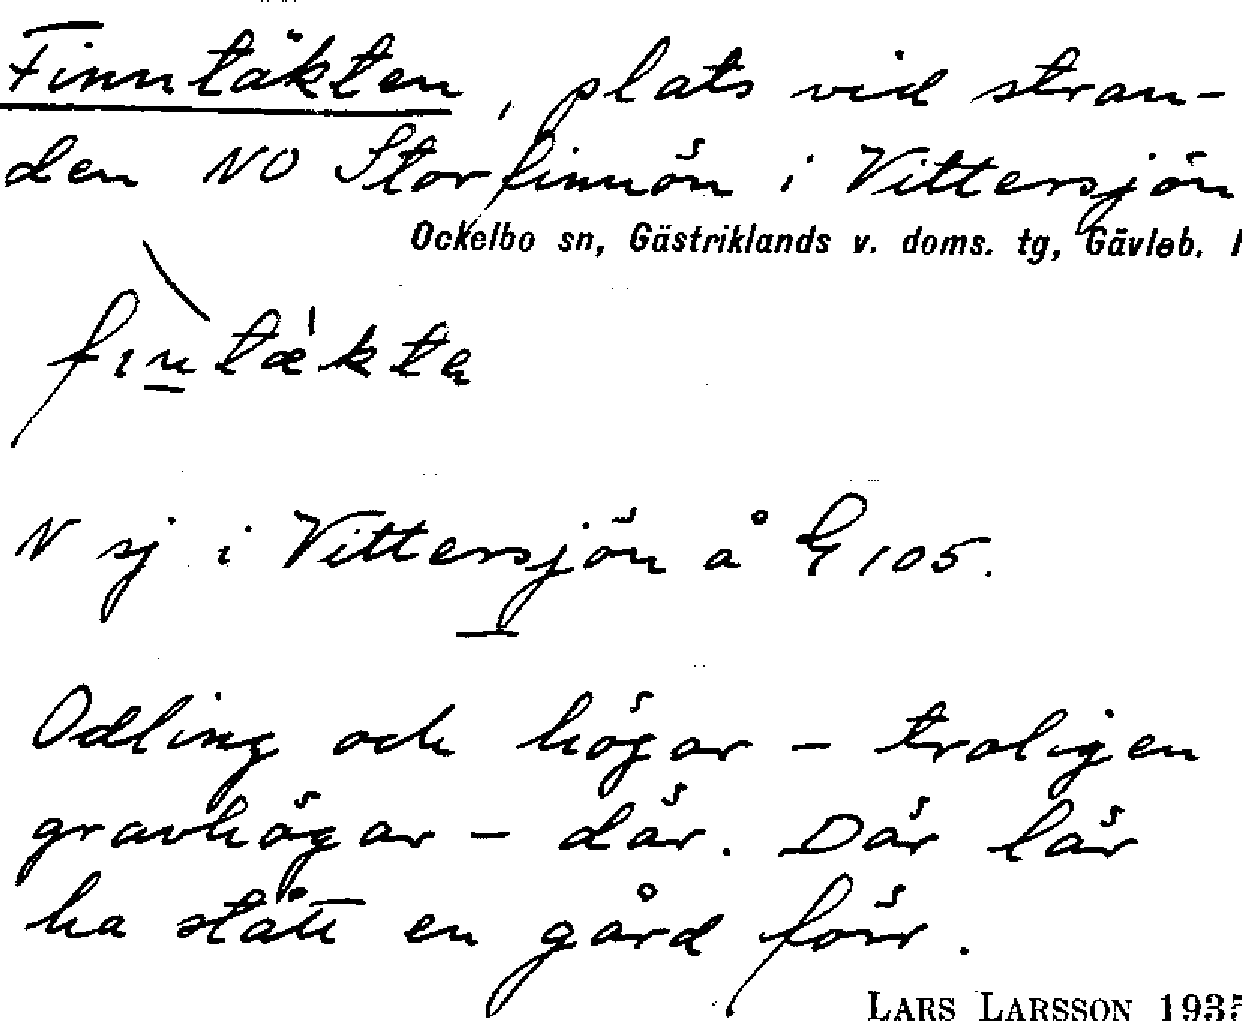 Finntäkten, plats vid stran-
den NO Storfinnön i Vittersjön
Ockelbo sn, Gästriklands v. doms. tg, Gävleb.
N sj i Vittersjön å G 105.
Odling och högar – troligen
gravhögar – där. Där lär
ha stått en gård förr.
LARS LARSSON 1935